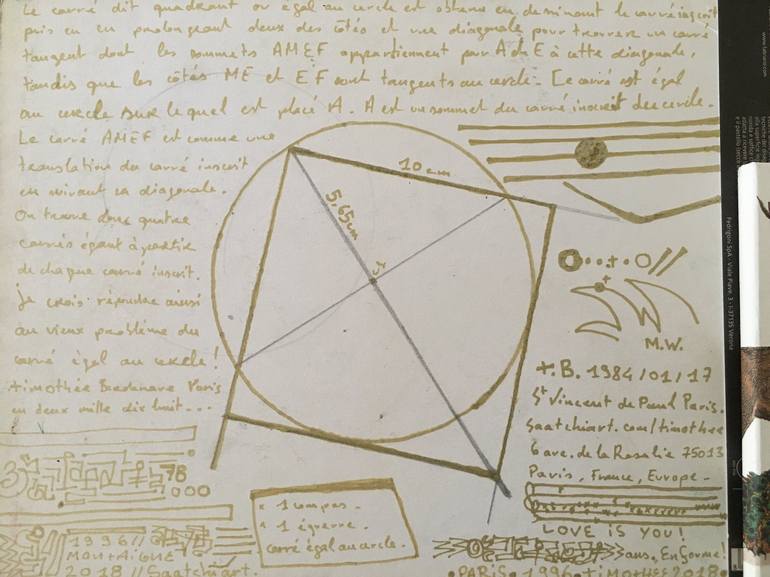 Le carré dit quadrant ou égal au cercle est obtenu en dessinant le carré inscrit
puis en en prolongeant deux des côtés et une diagonale pour trouver un carré
tangent dont les sommets AMEF appartiennent par A et E à cette diagonale,
tandis que les côtés ME et EF sont tangents au cercle. Ce carré est égal
au cercle sur lequel est placé A. A est un sommet du carré inscrit du cercle.
Le carré AMEF est comme une
translation du carré inscrit
en suivant sa diagonale.
On trouve donc quatre
carrés égaux à partir
de chaque carré inscrit.
Je crois répondre ainsi
au vieux problème du
carré égal au cercle!
timothée Paris
en deux mille dix huit...
10 cm
5.65cm
M.W.
+.B. 1984/01/17
St Vincent de Paul Paris.
saatchiart.com/timothee
6 ave. de la Rosalie 75013
Paris, France, Europe.
LOVE is YOU!
Sans. En forme!
78
1 compas.
1 équerre.
carré égal au cercle.
1996//
MONTAIGNE
2018 // Saatchiart.
PARIS. 1996. TiMOTHEE 2018.
Fedrigoni SpA - Viale Piave 3 - I-37135 Verona